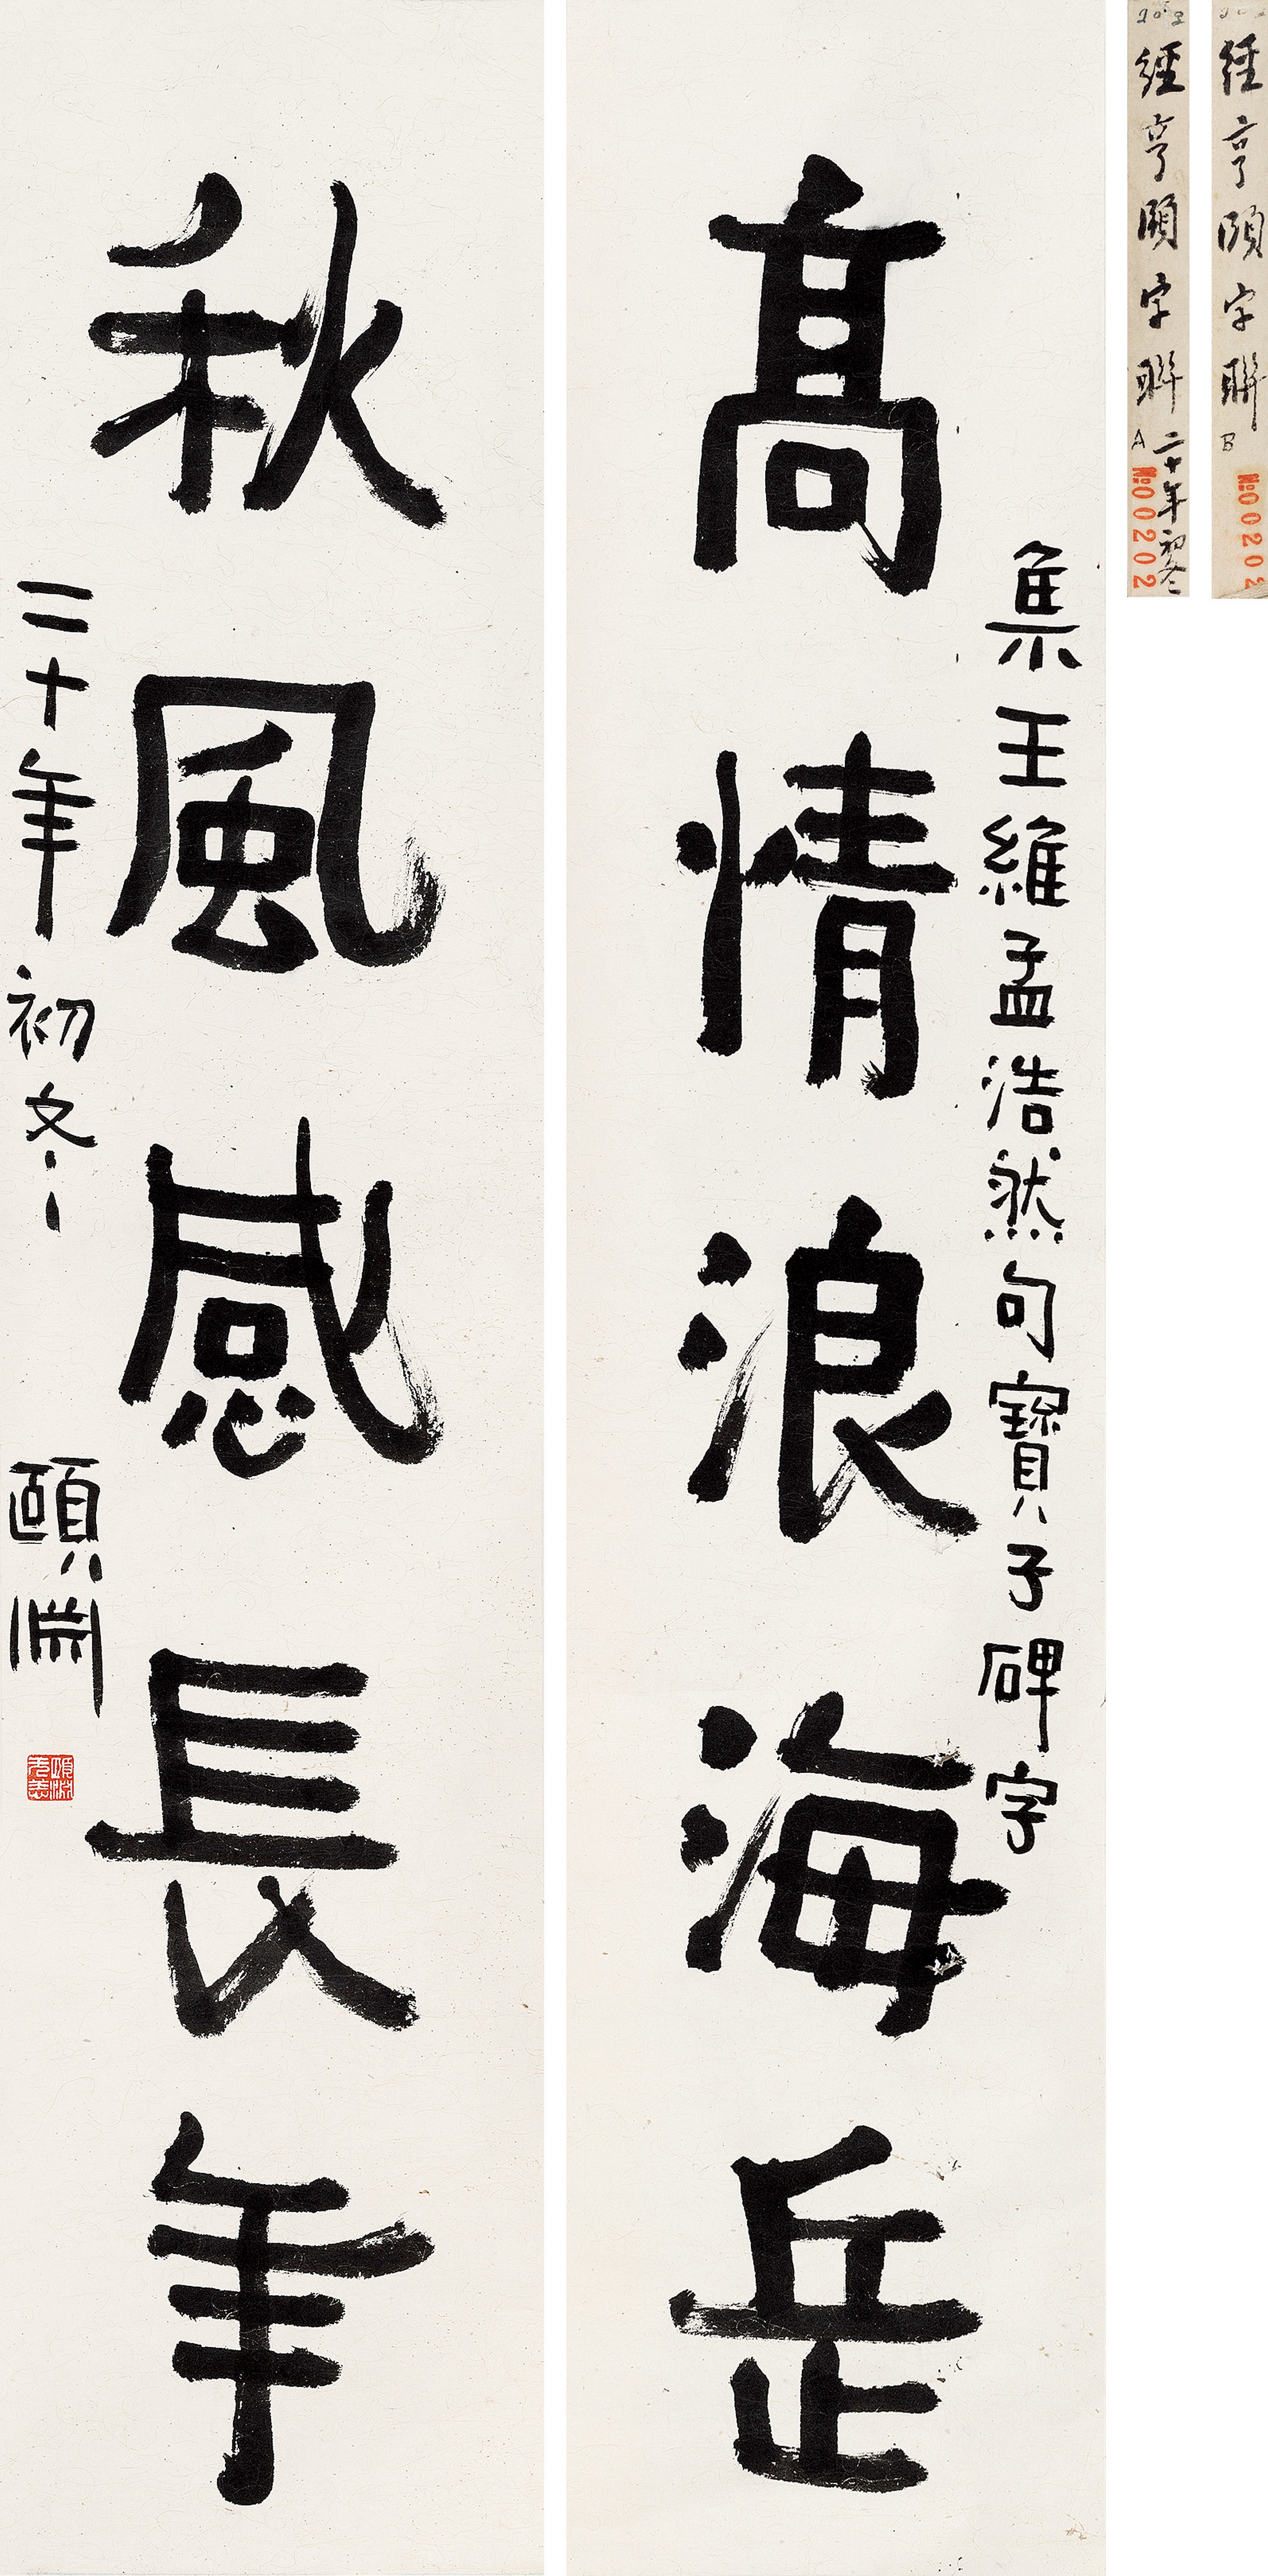 集王維孟浩然句寶子碑字
髙情浪海岳
秋風感長年
二十年初冬 頤淵
頤淵
202
經亨頤字聯
A
二十年初冬
No 00202
經亨頤字聯
B
No 00202